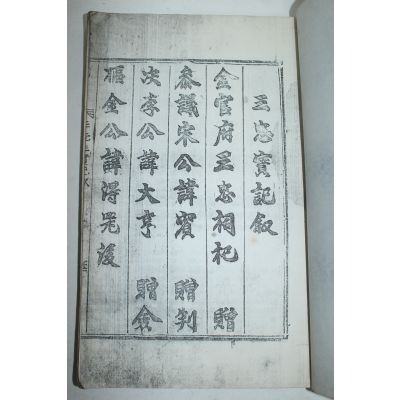 三忠實記叙
金官府三忠祠祀贈
叅議宋公諱賓贈判
決李公諱大亨贈僉
樞金公諱得器後